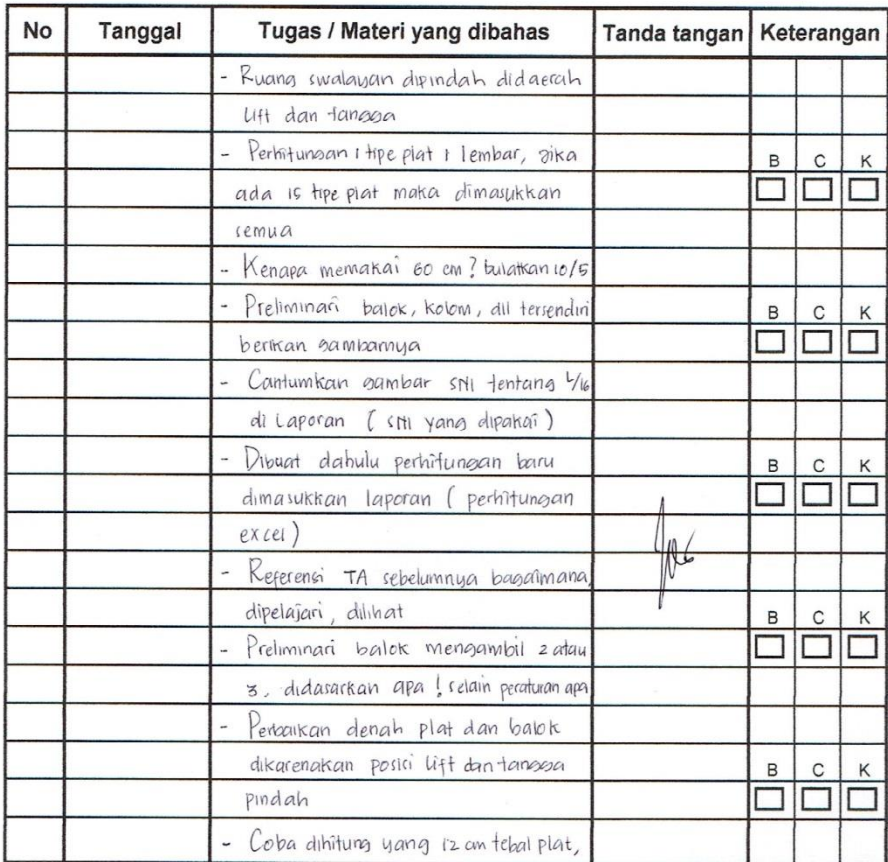 No Tanggal Tugas / Materi yang dibahas Tanda tangan Keterangan
- Ruang swalayan dipindah didaerah
Lift dan tangga
- Perhitungan 1 tipe plat 1 lembar, jika
B C K
ada 15 tipe plat maka dimasukkan
semua
- Kenapa memakai 60 cm? bulatkan 10/5
- Preliminari balok, kolom, dll tersendiri
B C K
berikan gambarnya
- Cantumkan gambar SNI tentang L/16
di Laporan ( SNI yang dipakai )
- Dibuat dahulu perhitungan baru
B C K
dimasukkan laporan ( perhitungan
excel )
- Referensi TA sebelumnya bagaimana,
dipelajari, dilihat
B C K
- Preliminari balok mengambil 2 atau
3, didasarkan apa ! selain peraturan apa
- Perbaikan denah plat dan balok
dikarenakan posisi lift dan tangga
B C K
pindah
- Coba dihitung yang 12 cm tebal plat,